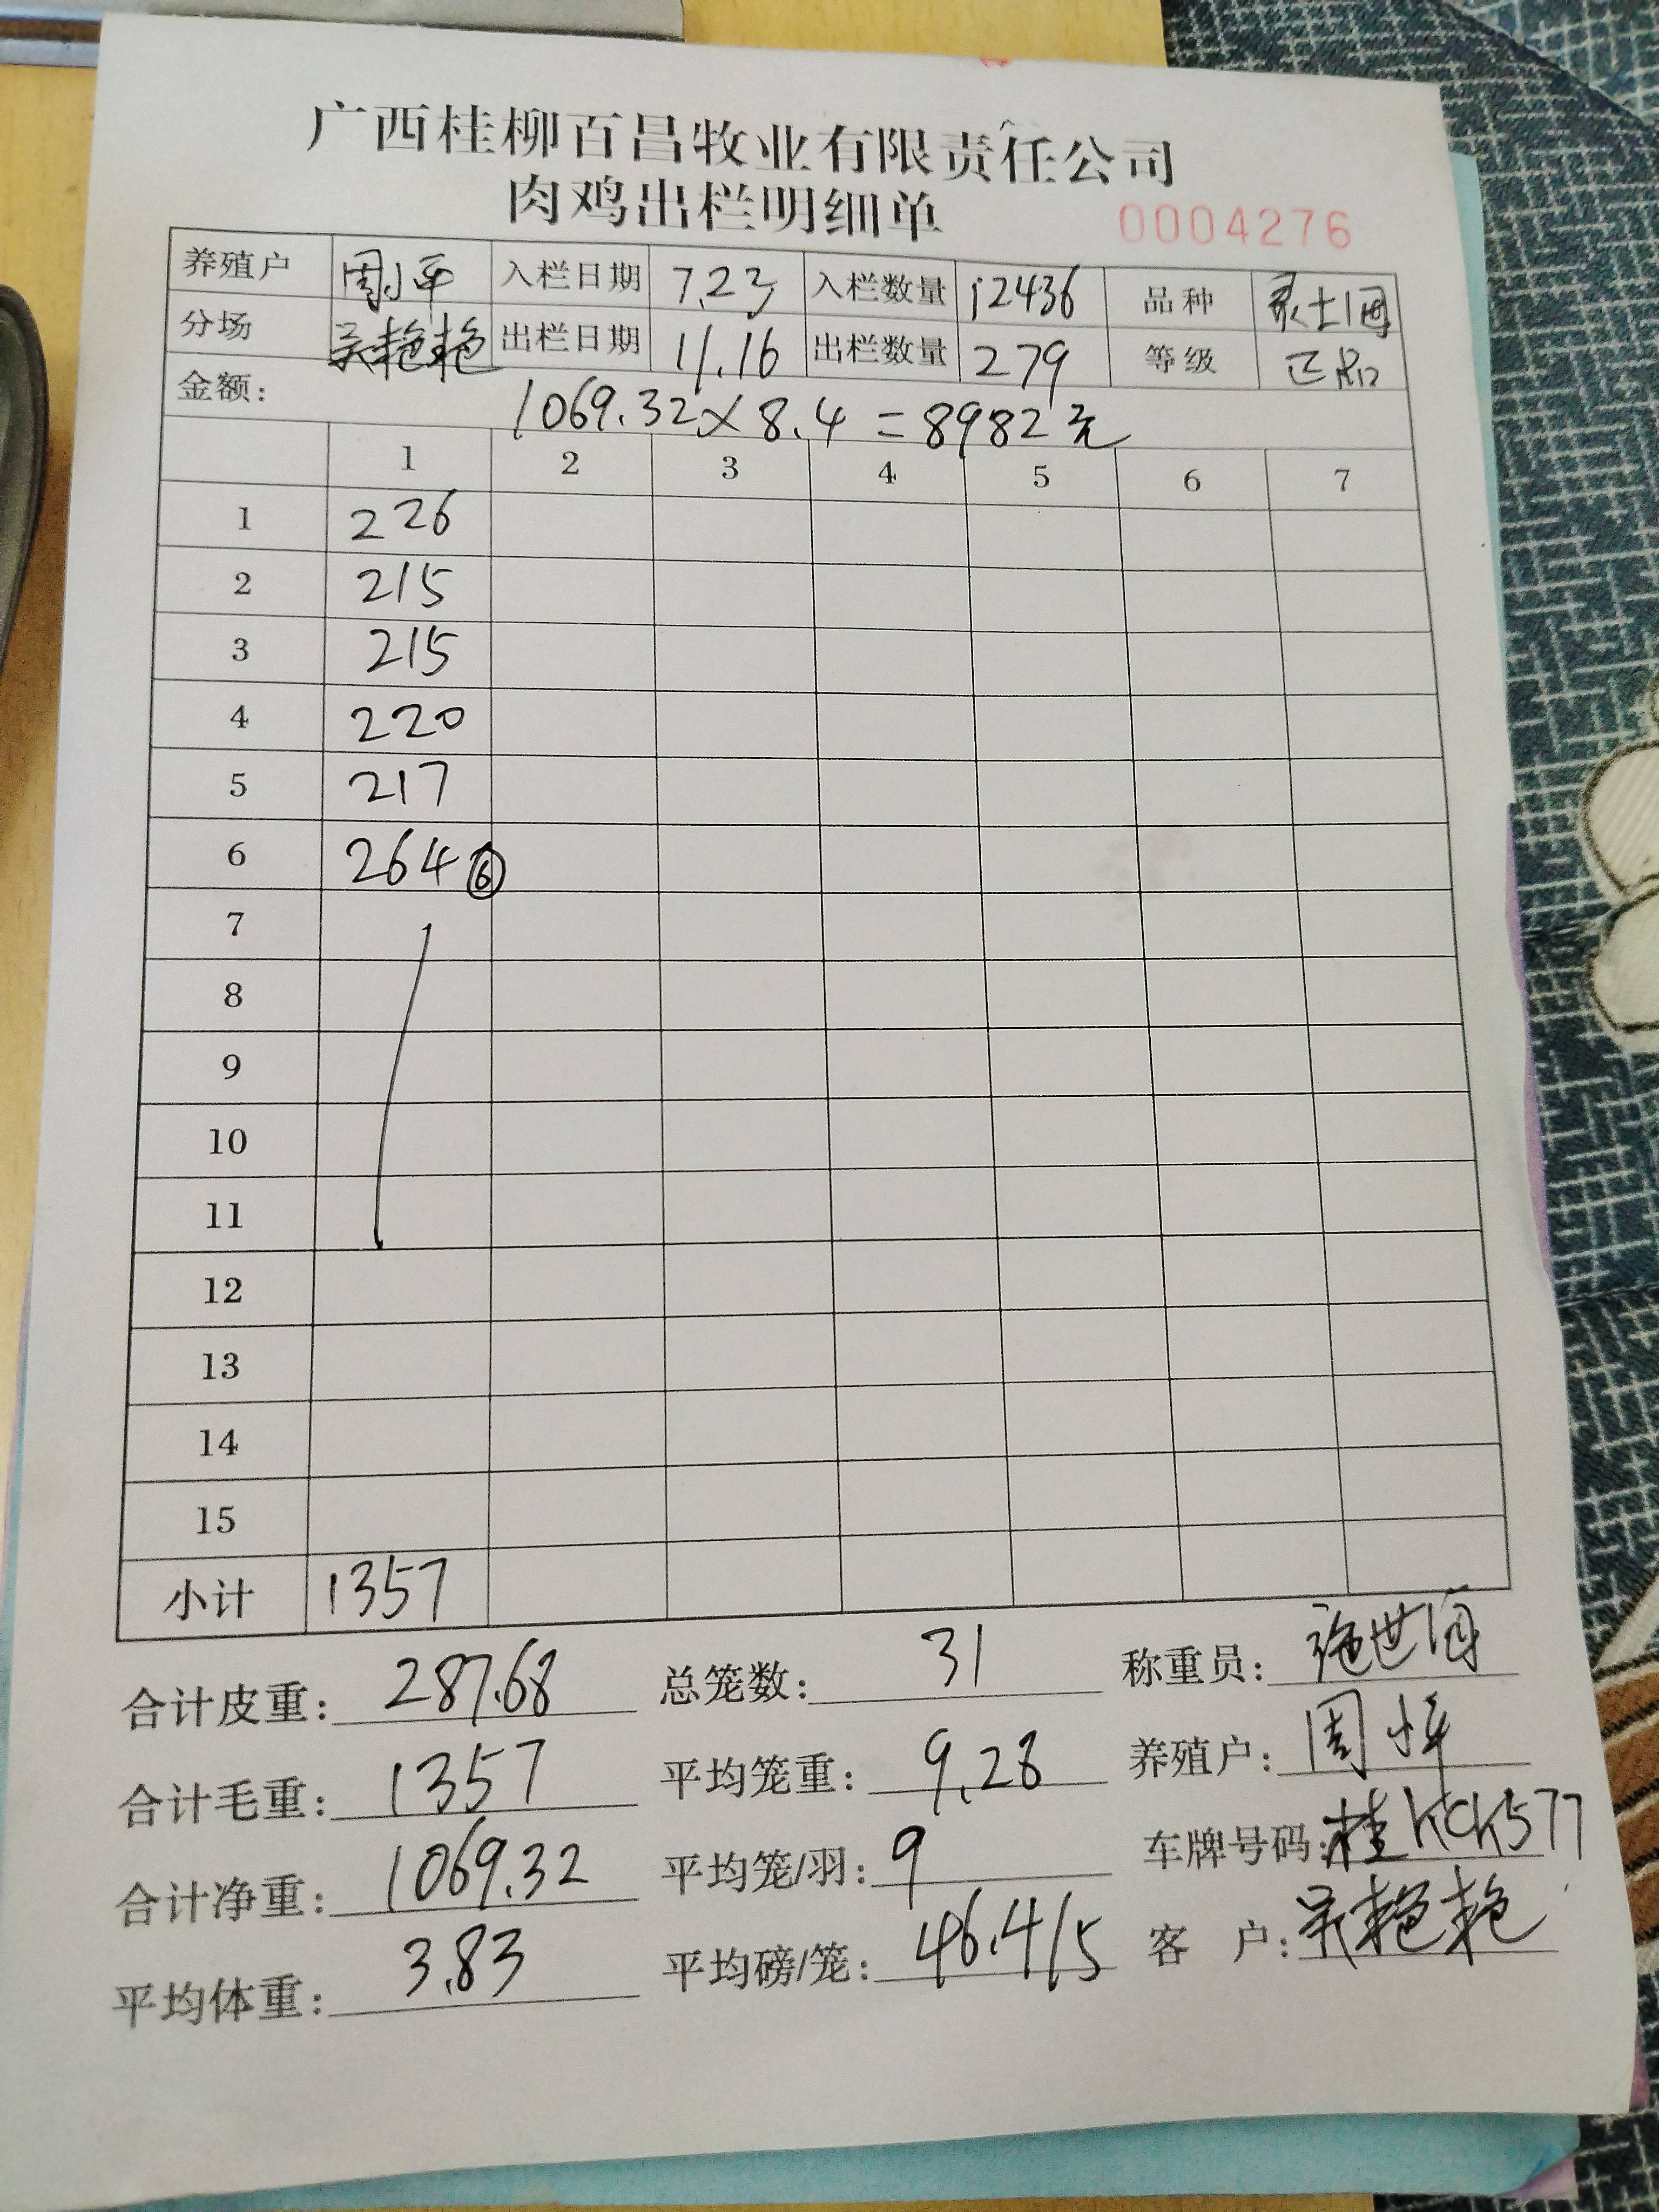 广西桂柳百昌牧业有限责任公司
肉鸡出栏明细单 0004276
养殖户 周小平 入栏日期 7.23 入栏数量 12436 品种
分场 吴艳艳 出栏日期 11.16 出栏数量 279 等级 正品
金额: 1069.32×8.4=8982元
1 2 3 4 5 6 7
1 226
2 215
3 215
4 220
5 217
6 264 ⑥
7
8
9
10
11
12
13
14
15
小计 1357
合计皮重: 287.68 总笼数: 31 称重员:
合计毛重: 1357 平均笼重: 9.28 养殖户: 周小平
合计净重: 1069.32 平均笼/羽: 9 车牌号码: 桂KCK577
平均体重: 3.83 平均磅/笼: 46.4/5 客 户: 吴艳艳